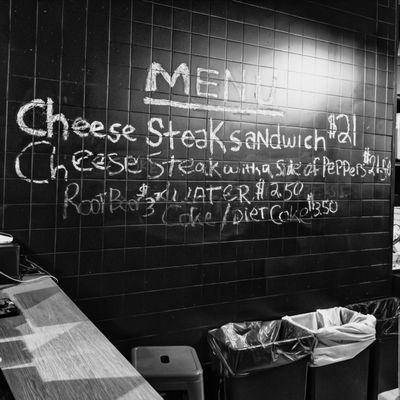 MENU
Cheese Steak sandwich $21
Cheese Steak with a side of Peppers $21.50
Root Beer $3 WATER $2.50
Coke / Diet Coke $3.50